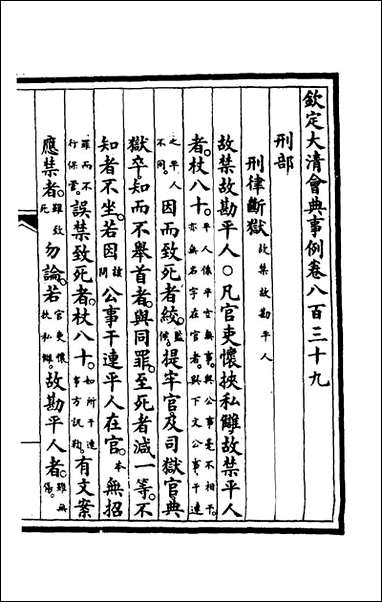 欽定大清會典事例卷八百三十九
刑部
刑律斷獄故禁故勘平人
故禁故勘平人○凡官吏懷挾私讎故禁平人
者。杖八十。平人係平空無事。與公事毫不相干。亦無名字在官者。與下文公事干連
之平人不同。因而致死者絞。監候。提牢官及司獄官典
獄卒。知而不舉首者。與同罪。至死者減一等。不
知者不坐。若因該問公事干連平人在官。本無招
罪而不行保管。誤禁致死者。杖八十。如所干連事方訊鞫。有文案
應禁者。雖致死勿論。若官吏懷挾私讎。故勘平人者。雖無傷。